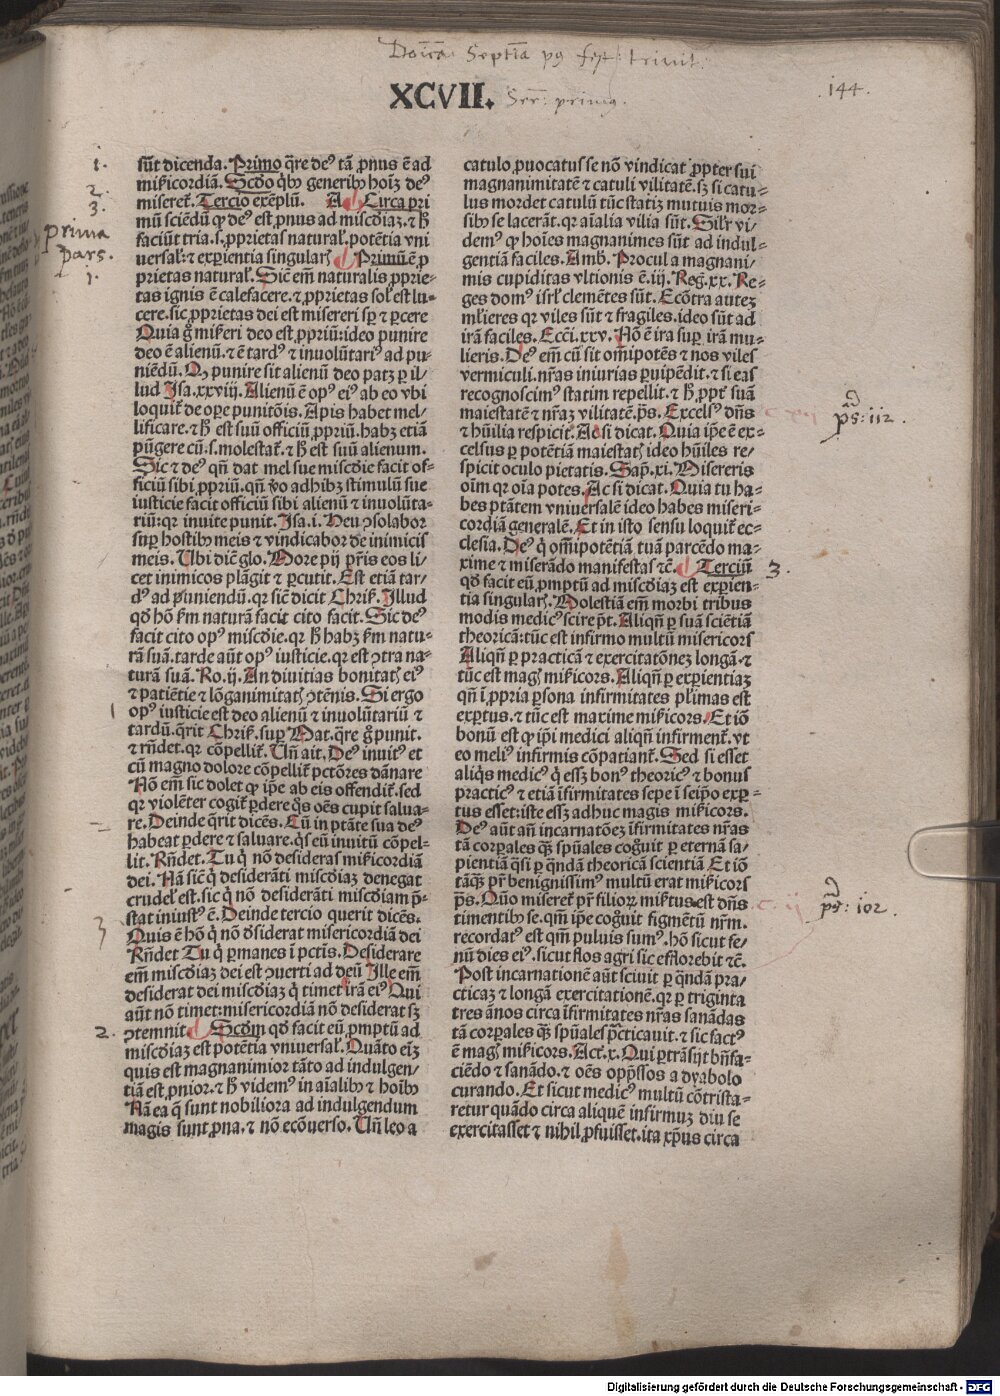 Dõica Septĩa pꝰ fest: trinit:
XCVII. Ser: primꝰ.
144.
sũt dicenda. Primo q̃re deꝰ tã ꝓnus ẽ ad
mĩᷤicordiã. Scd̃o qͥbꝰ generibꝰ hoĩꝫ deꝰ
miseret̃. Tercio exẽplũ. A Circa pri
mũ sciẽdũ ꝙ deꝰ est ꝓnus ad mĩscd̃iaꝫ. ⁊ h̃
faciũt tria. s. ꝓprietas natural̃. potẽtia vni
uersal̃. ⁊ exꝑientia singularꝭ Primũ ẽ ꝓ
prietas natural̃. Sic em̃ naturalis ꝓprie-
tas ignis ẽ calefacere. ⁊ ꝓprietas sol̃ est lu-
cere. sic ꝓprietas dei est misereri sꝑ ⁊ ꝑcere
Quia g̃ mĩᷤeri deo est ꝓpriũ: ideo punire
deo ẽ alienũ. ⁊ ẽ tardꝰ ⁊ inuolũtariꝰ ad pu-
niẽdũ. Qꝙ punire sit alienũ deo patꝫ ꝑ il-
lud Isa. xxviij. Alienũ ẽ opꝰ eiꝰ ab eo vbi
loquit̃ de oꝑe punitõis. Apis habet mel-
lificare. ⁊ h̃ est suũ officiũ ꝓpriũ. habꝫ etiã
pũgere cũ. s. molestat̃. ⁊ h̃ est suũ alienum.
Sic ⁊ deꝰ qñ dat mel sue mĩscd̃ie facit of-
ficiũ sibi ꝓpriũ. qñ ṽo adhibꝫ stimulũ sue
iusticie facit officiũ sibi alienũ ⁊ inuolũta-
riũ: qr inuite punit. Isa. i. Heu ꝯsolabor
suꝑ hostibꝰ meis ⁊ vindicabor de inimicis
meis. Ubi dic̃ glo. More pij pr̃is eos li-
cet inimicos plãgit ⁊ ꝑcutit. Est etiã tar-
dꝰ ad puniendũ. qr sic̃ dicit Chriẛ. Illud
qd̃ hõ ẛm naturã facit cito facit. Sic deꝰ
facit cito opꝰ mĩscd̃ie. qr h̃ habꝫ ẛm natu-
rã suã. tarde aũt opꝰ iusticie. qr est ꝯtra na-
turã suã. Ro. ij. An diuitias bonitatꝭ eiꝰ
⁊ patiẽtie ⁊ lõganimitatꝭ ꝯtẽnis. Si ergo
opꝰ iusticie est deo alienũ ⁊ inuolũtariũ ⁊
tardũ. q̃rit Chriẛ. suꝑ Mat. q̃re g̃ punit.
⁊ rñdet. qr cõpellit̃. Uñ ait. Deꝰ inuitꝰ et
cũ magno dolore cõpellit̃ pctõres dãnare
Nõ em̃ sic dolet qꝛ ip̃e ab eis offendit̃. sed
qr violẽter cogit̃ ꝑdere q̃s oẽs cupit salua-
re. Deinde q̃rit dicẽs. Cũ in ptãte sua deꝰ
habeat ꝑdere ⁊ saluare. q̃s eũ inuitũ cõpel-
lit. Rñdet. Tu q̃ nõ desideras mĩᷤicordiã
dei. Nã sic̃ q̃ desiderãti mĩscd̃iaꝫ denegat
crudel̃ est. sic q̃ nõ desiderãti mĩscd̃iam p̃-
stat iniustꝰ ẽ. Deinde tercio querit dicẽs.
Quis ẽ hõ q̃ nõ d̃siderat misericordiã dei
Rñdet Tu q̃ ꝑmanes ĩ pctĩs. Desiderare
em̃ mĩscd̃iaꝫ dei est ꝯuerti ad deũ Ille em̃
desiderat dei mĩscd̃iaꝫ q̃ timet irã eiꝰ Qui
aũt nõ timet: misericordiã nõ desiderat sꝫ
ꝯtemnit Scd̃m qd̃ facit eũ ꝓmptũ ad
mĩscd̃iaꝫ est potẽtia vniuersal̃. Quãto em̃
quis est magnanimior tãto ad indulgen-
tiã est ꝓnior. ⁊ h̃ videmꝰ in aĩalibꝰ ⁊ hoĩbꝰ
Nã ea q̃ sunt nobiliora ad indulgendum
magis sunt ꝓna. ⁊ nõ ecõuerso. Uñ leo a
catulo ꝓuocatus se nõ vindicat ꝓpter sui
magnanimitatẽ ⁊ catuli vilitatẽ. sꝫ si catu-
lus mordet catulũ tũc statiꝫ mutuis mor-
sibꝰ se lacerãt. qr aĩalia vilia sũt. Silr̃ vi-
demꝰ ꝙ hoĩes magnanimes sũt ad indul-
gentiã faciles. Amb. Procul a magnani-
mis cupiditas vltionis ẽ. iij. Reg. xx. Re-
ges domꝰ isrl̃ clemẽtes sũt. Ecõtra auteꝫ
ml̃ieres qr viles sũt ⁊ fragiles. ideo sũt ad
irã faciles. Ecci. xxv. Nõ ẽ ira suꝑ irã mu-
lieris. Deꝰ em̃ cũ sit om̃ipotẽs ⁊ nos viles
vermiculi. nr̃as iniurias ꝑuipẽdit. ⁊ si eas
recognoscimꝰ statim repellit. ⁊ h̃ ꝓpt̃ suã
maiestatẽ ⁊ nr̃aꝫ vilitatẽ. p̃s. Excelsꝰ dñs
⁊ hũilia respicit. Ac si dicat. Quia ip̃e ẽ ex-
celsus ꝑ potẽtiã maiestatꝭ ideo hũiles re-
spicit oculo pietatis. Sap̃. xi. Misereris
oĩm qr oĩa potes. Ac si dicat. Quia tu ha-
bes ptãtem vniuersalẽ ideo habes miseri-
cordiã generalẽ. Et in isto sensu loquit̃ ec-
clesia. Deꝰ q̃ om̃ipotẽtiã tuã parcẽdo ma-
xime ⁊ miserãdo manifestas ⁊c̃. Terciũ
qd̃ facit eũ ꝓmptũ ad mĩscd̃iaꝫ est exꝑien-
tia singularꝭ. Molestiã em̃ morbi tribus
modis medicꝰ scire pt̃. Aliqñ ꝑ suã sciẽtiã
theoricã: tũc est infirmo multũ misericors
Aliqñ ꝑ practicã ⁊ exercitatõneꝫ longã. ⁊
tũc est magꝭ mĩᷤicors. Aliqñ ꝑ exꝑientiaꝫ
qñ ĩ ꝓpria ꝑsona infirmitates plĩmas est
exꝑtus. ⁊ tũc est maxime mĩᷤicors. Et iõ
bonũ est ꝙ ip̃i medici aliqñ infirment̃. vt
eo meliꝰ infirmis cõpatiant̃. Sed si esset
aliqͥs medicꝰ q̃ essꝫ bonꝰ theoricꝰ ⁊ bonus
practicꝰ ⁊ etiã ĩfirmitates sepe ĩ seip̃o exꝑ-
tus esset: iste essꝫ adhuc magis mĩᷤicors.
Deꝰ aũt añ incarnatõeꝫ ĩfirmitates nr̃as
tã corꝑales q̃ꝫ sp̃uales cog̃uit ꝑ eternã sa-
pientiã q̃si ꝑ q̃ndã theoricã scientiã Et iõ
tãq̃ꝫ pr̃ benignissimꝰ multũ erat mĩᷤicors
p̃s. Quõ miseret̃ pr̃ filioꝝ mĩᷤtus est dñs
timentibꝰ se. qm̃ ip̃e cog̃uit figmẽtũ nr̃m.
recordatꝰ est qm̃ puluis sumꝰ. hõ sicut fe-
nũ dies eiꝰ. sicut flos agri sic efflorebit ⁊c̃.
Post incarnationẽ aũt sciuit ꝑ q̃ndã pra-
cticaꝫ ⁊ longã exercitationẽ. qr ꝑ triginta
tres ãnos circa ĩfirmitates nr̃as sanãdas
tã corꝑales q̃ꝫ sp̃uales p̃cticauit. ⁊ sic factꝰ
ẽ magꝭ mĩᷤicors. Act̃. x. Qui ꝑtrãsijt bñfa-
ciẽdo ⁊ sanãdo. ⁊ oẽs opp̃ssos a dyabolo
curando. Et sicut medicꝰ multũ cõtrista-
retur quãdo circa aliquẽ infirmuꝫ diu se
exercitasset ⁊ nihil ꝓfuisset. ita xp̃us circa
1.
2.
3.
prima
pars.
1.
1
3
2.
ps: 112.
3.
ps: 102.
Digitalisierung gefördert durch die Deutsche Forschungsgemeinschaft - DFG